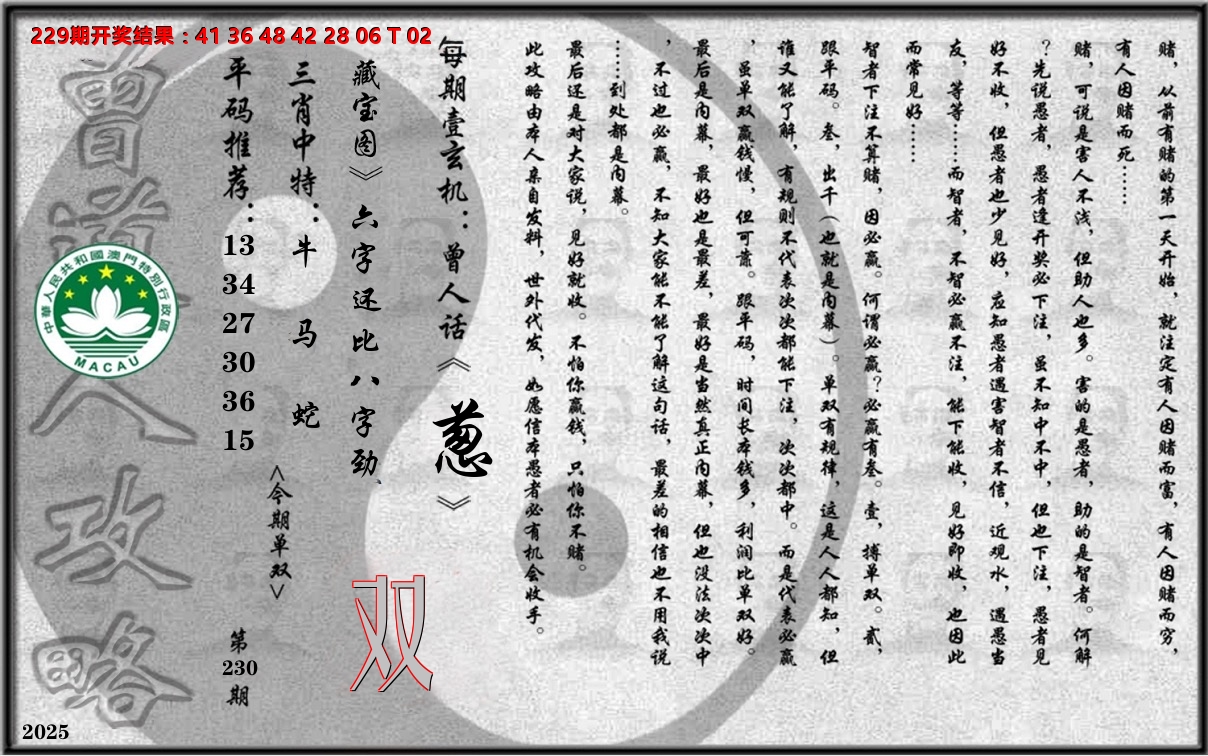 229期开奖结果：41 36 48 42 28 06 T 02
赌，从前有赌的第一天开始，就注定有人因赌而富，有人因赌而穷，
有人因赌而死……
赌，可说是害人不浅，但助人也多。害的是愚者，助的是智者。何解
？先说愚者，愚者逢开奖必下注，虽不知中不中，但也下注，愚者见
好不收，但愚者也少见好，应知愚者遇害智者不信，近观水，遇愚当
友，等等……而智者，不智必赢不注，能下能收，见好即收，也因此
而常见好……
智者下注不算赌，因必赢。何谓必赢？必赢有叁。壹，搏单双。贰，
跟平码。叁，出千（也就是内幕）。单双有规律，这是人人都知，但
谁又能了解，有规则不代表次次都能下注，次次都中。而是代表必赢
，虽单双赢钱慢，但可靠。跟平码，时间长本钱多，利润比单双好。
最后是内幕，最好也是最差，最好是当然真正内幕，但也没法次次中
，不过也必赢，不知大家能不能了解这句话，最差的相信也不用我说
……到处都是内幕。
最后还是对大家说，见好就收。不怕你赢钱，只怕你不赌。
此攻略由本人亲自发料，世外代发，如愿信本愚者必有机会收手。
每期壹玄机：曾人话《葱》
藏宝图》六字还比八字劲、
双
三肖中特：牛 马 蛇
<今期单双>
平码推荐：13 34 27 30 36 15
第230期
曾道人攻略
中華人民共和國澳門特別行政區
MACAU
2025